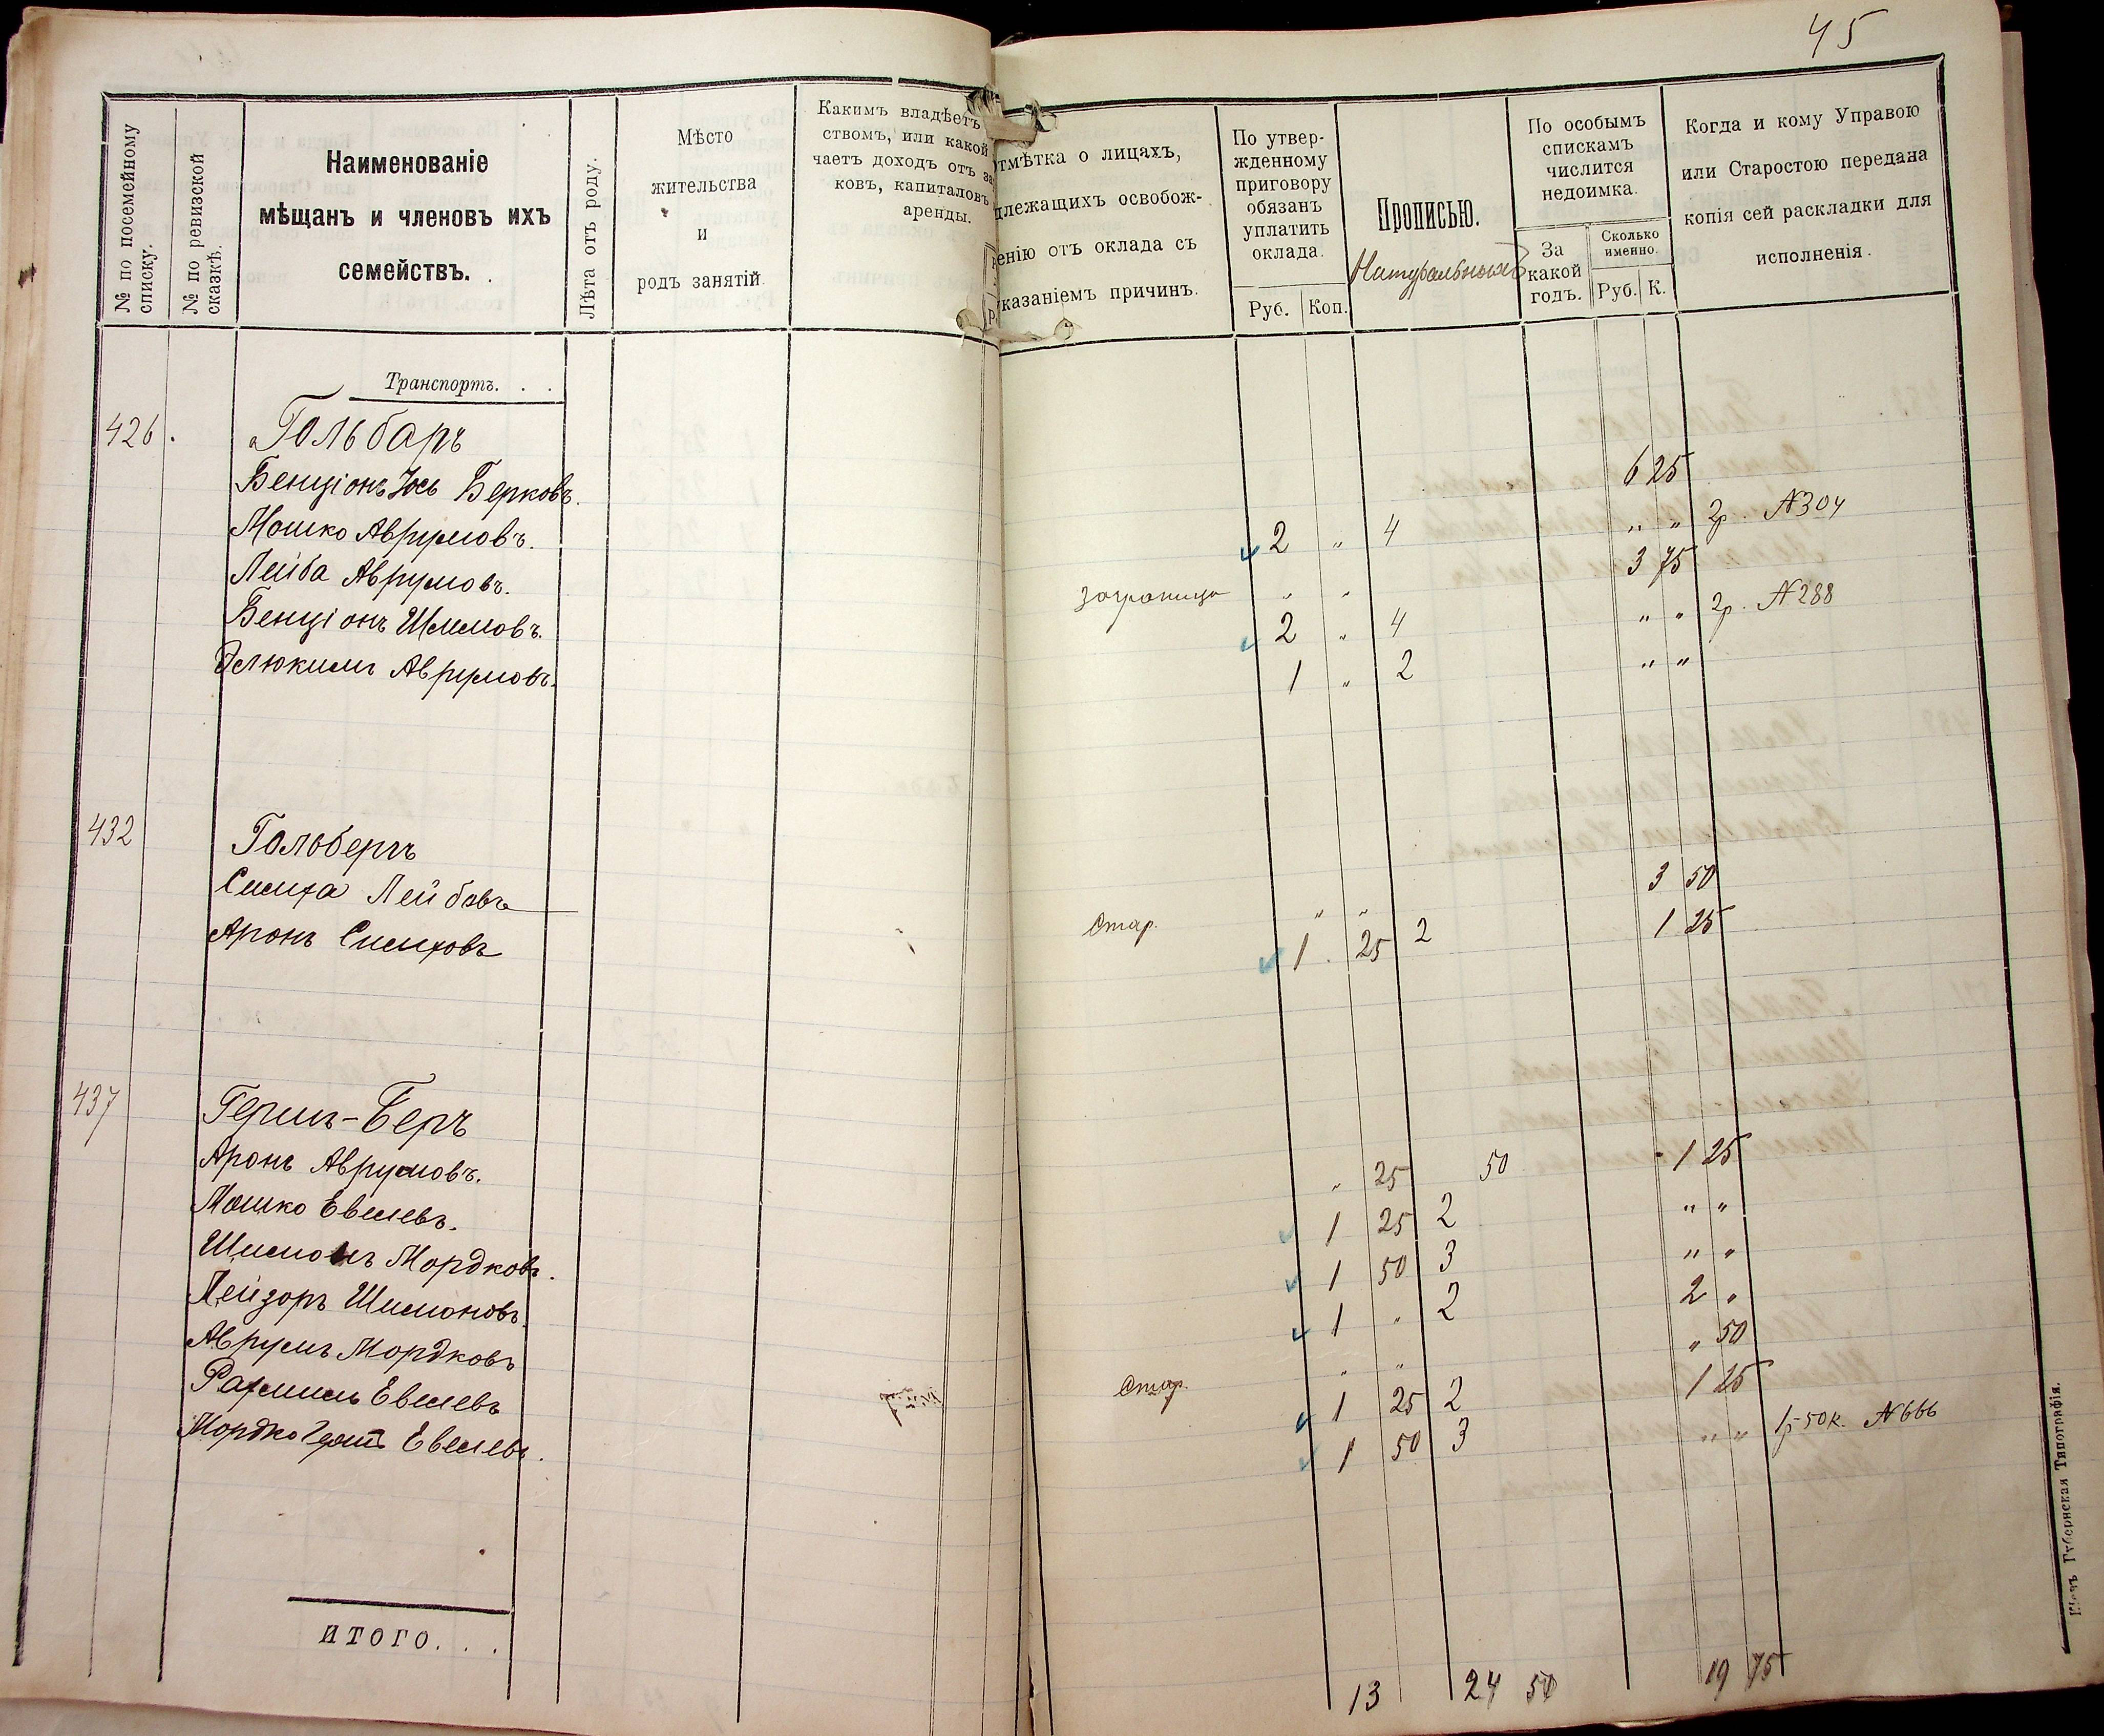 45
№ по посемейному списку.
№ по ревизской сказкѣ.
Наименованіе
мѣщанъ и членовъ ихъ
семействъ.
Лѣта отъ роду.
Мѣсто
жительства
и
родъ занятій.
Какимъ владѣетъ
ствомъ, или какой
чаетъ доходъ отъ за
ковъ, капиталовъ
аренды.
отмѣтка о лицахъ,
длежащихъ освобож-
енію отъ оклада съ
указаніемъ причинъ.
По утвер-
жденному
приговору
обязанъ
уплатить
оклада.
Руб. Коп.
Прописью.
Натуральныхъ
По особымъ
спискамъ
числится
недоимка.
За
какой
годъ.
Сколько
именно.
Руб. К.
Когда и кому Управою
или Старостою передана
копія сей раскладки для
исполненія.
Транспортъ. . .
426. Гольбаръ
Бенціонъ Іось Берковъ. 6 25
Мошко Аврумовъ. 2 „ 4 „ „ 2р. N304
Лейба Аврумовъ. заграницо „ „ 3 75
Бенціонъ Шмилювъ. 2 „ 4 „ „ 2р. N288
Элюкимъ Аврумовъ. 1 „ 2 „ „
432 Гольбергъ
Симха Лейбовъ Стар. „ „ 3 50
Аронъ Симховъ 1 25 2 1 25
437 Герш-Беръ
Аронъ Аврумовъ. „ 25 50 1 25
Мошко Евелевъ. 1 25 2 „ „
Шимонъ Мордковъ. 1 50 3 „ „
Лейзоръ Шимоновъ. 1 „ 2 2 „
Аврумъ Мордковъ Стар. „ „ „ 50
Рахмиль Евелевъ 1 25 2 1 25
Мордко Евелевъ. 1 50 3 „ „ 1р 50к. N666
ИТОГО. . .
13 24 50 19 75
Кіевъ Губернская Типографія.